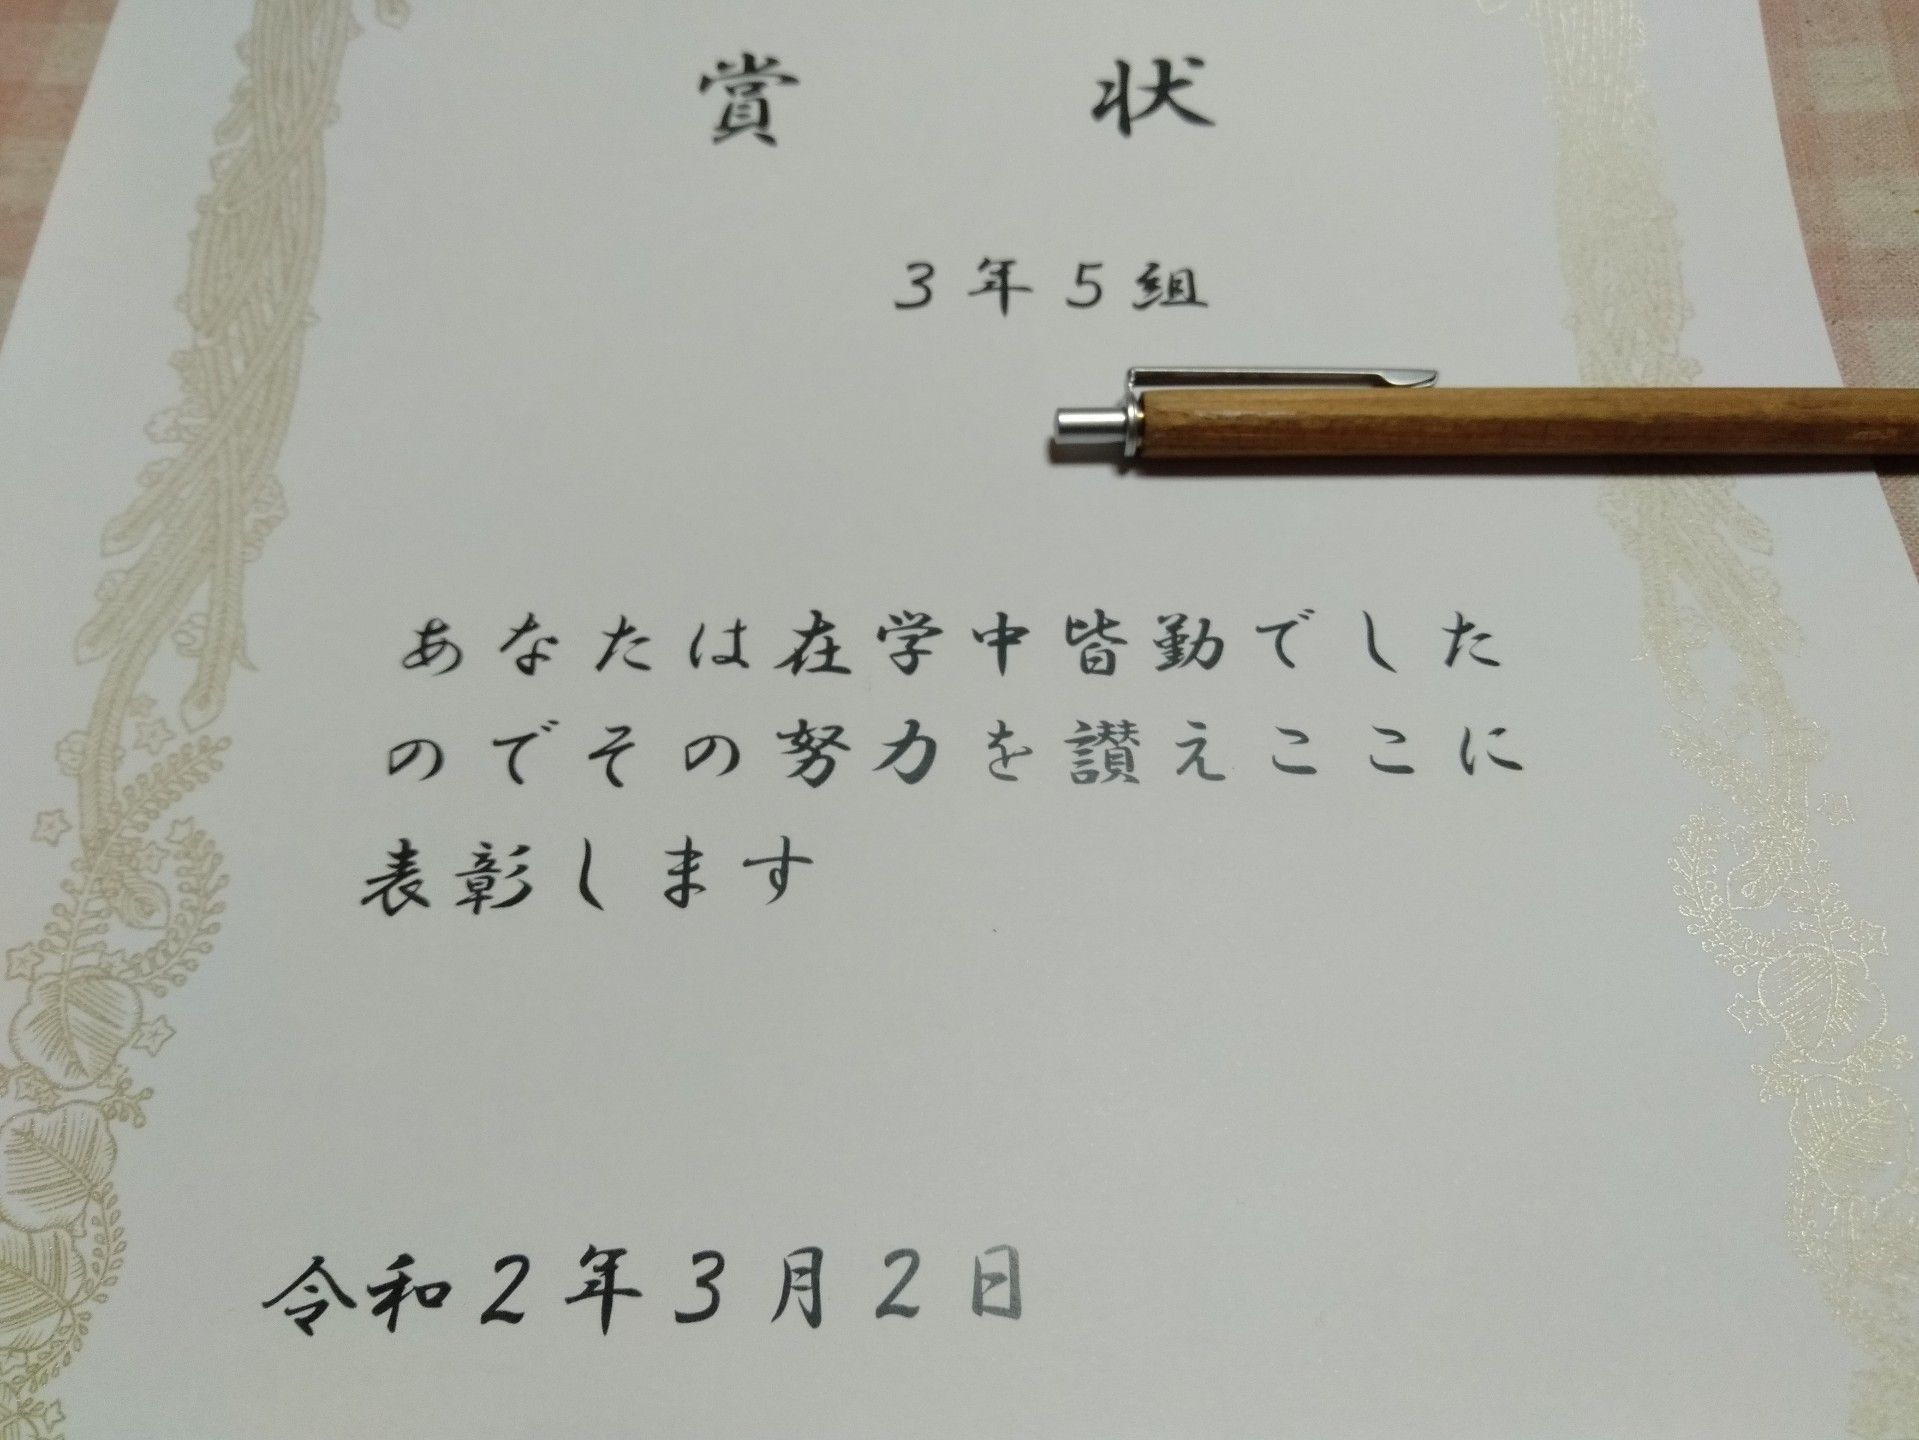 賞状
3年5組
あなたは在学中皆勤でした
のでその努力を讃えここに
表彰します
令和2年3月2日